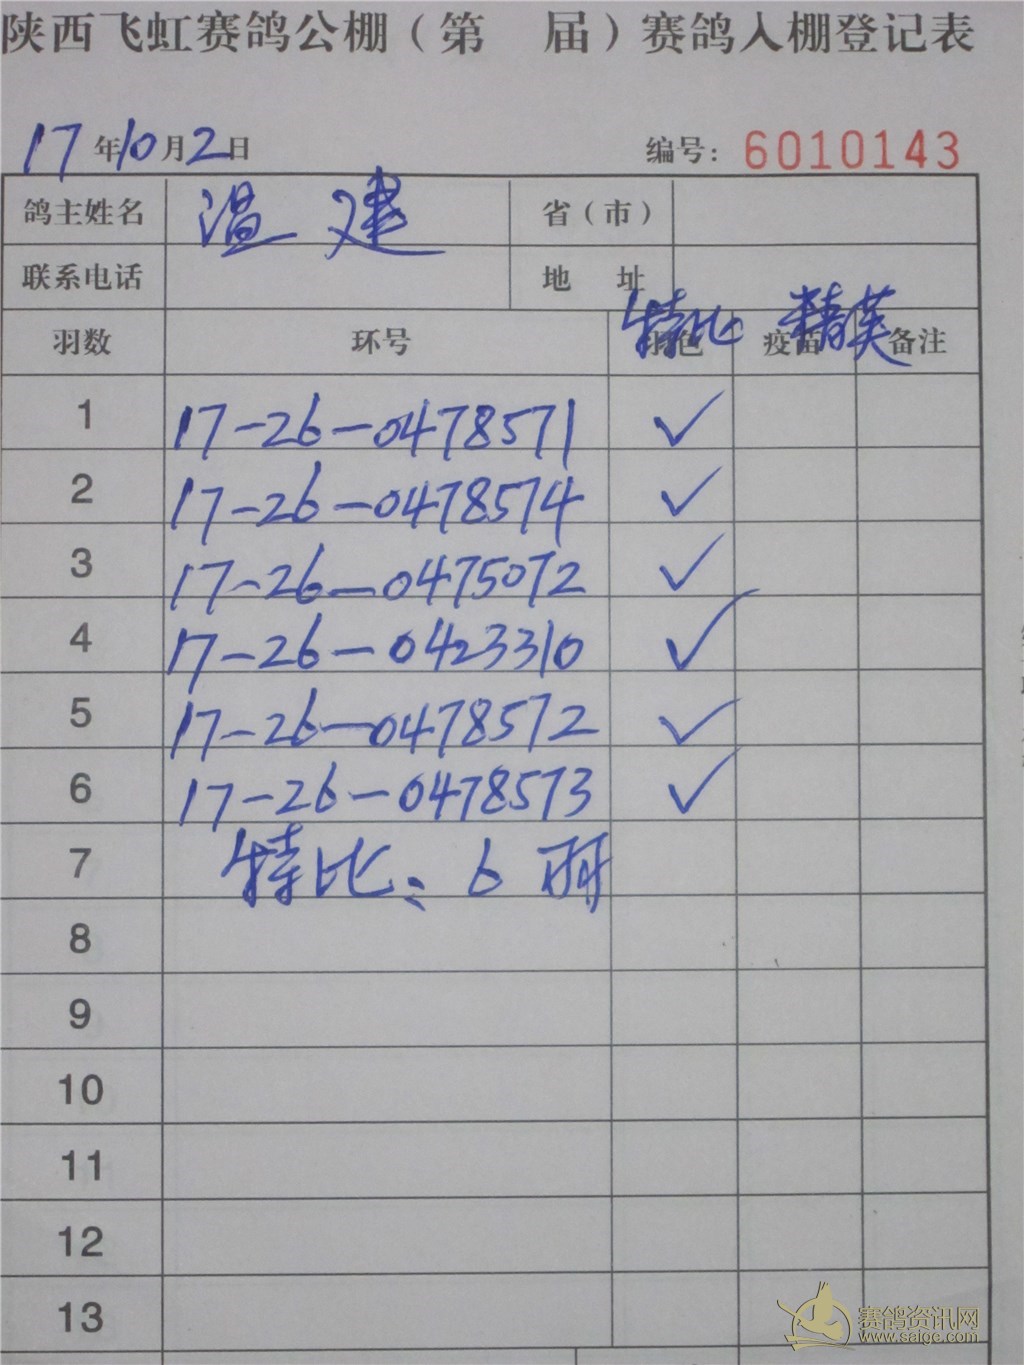 陕西飞虹赛鸽公棚(第 届)赛鸽入棚登记表
17年10月2日 编号: 6010143
鸽主姓名 温建 省(市)
联系电话 地 址
特比 精英
羽数 环号 羽色 疫苗 备注
1 17-26-0478571 ✓
2 17-26-0478574 ✓
3 17-26-0475072 ✓
4 17-26-0423310 ✓
5 17-26-0478572 ✓
6 17-26-0478573 ✓
7 特比: 6羽
8
9
10
11
12
13
赛鸽资讯网
www.saige.com